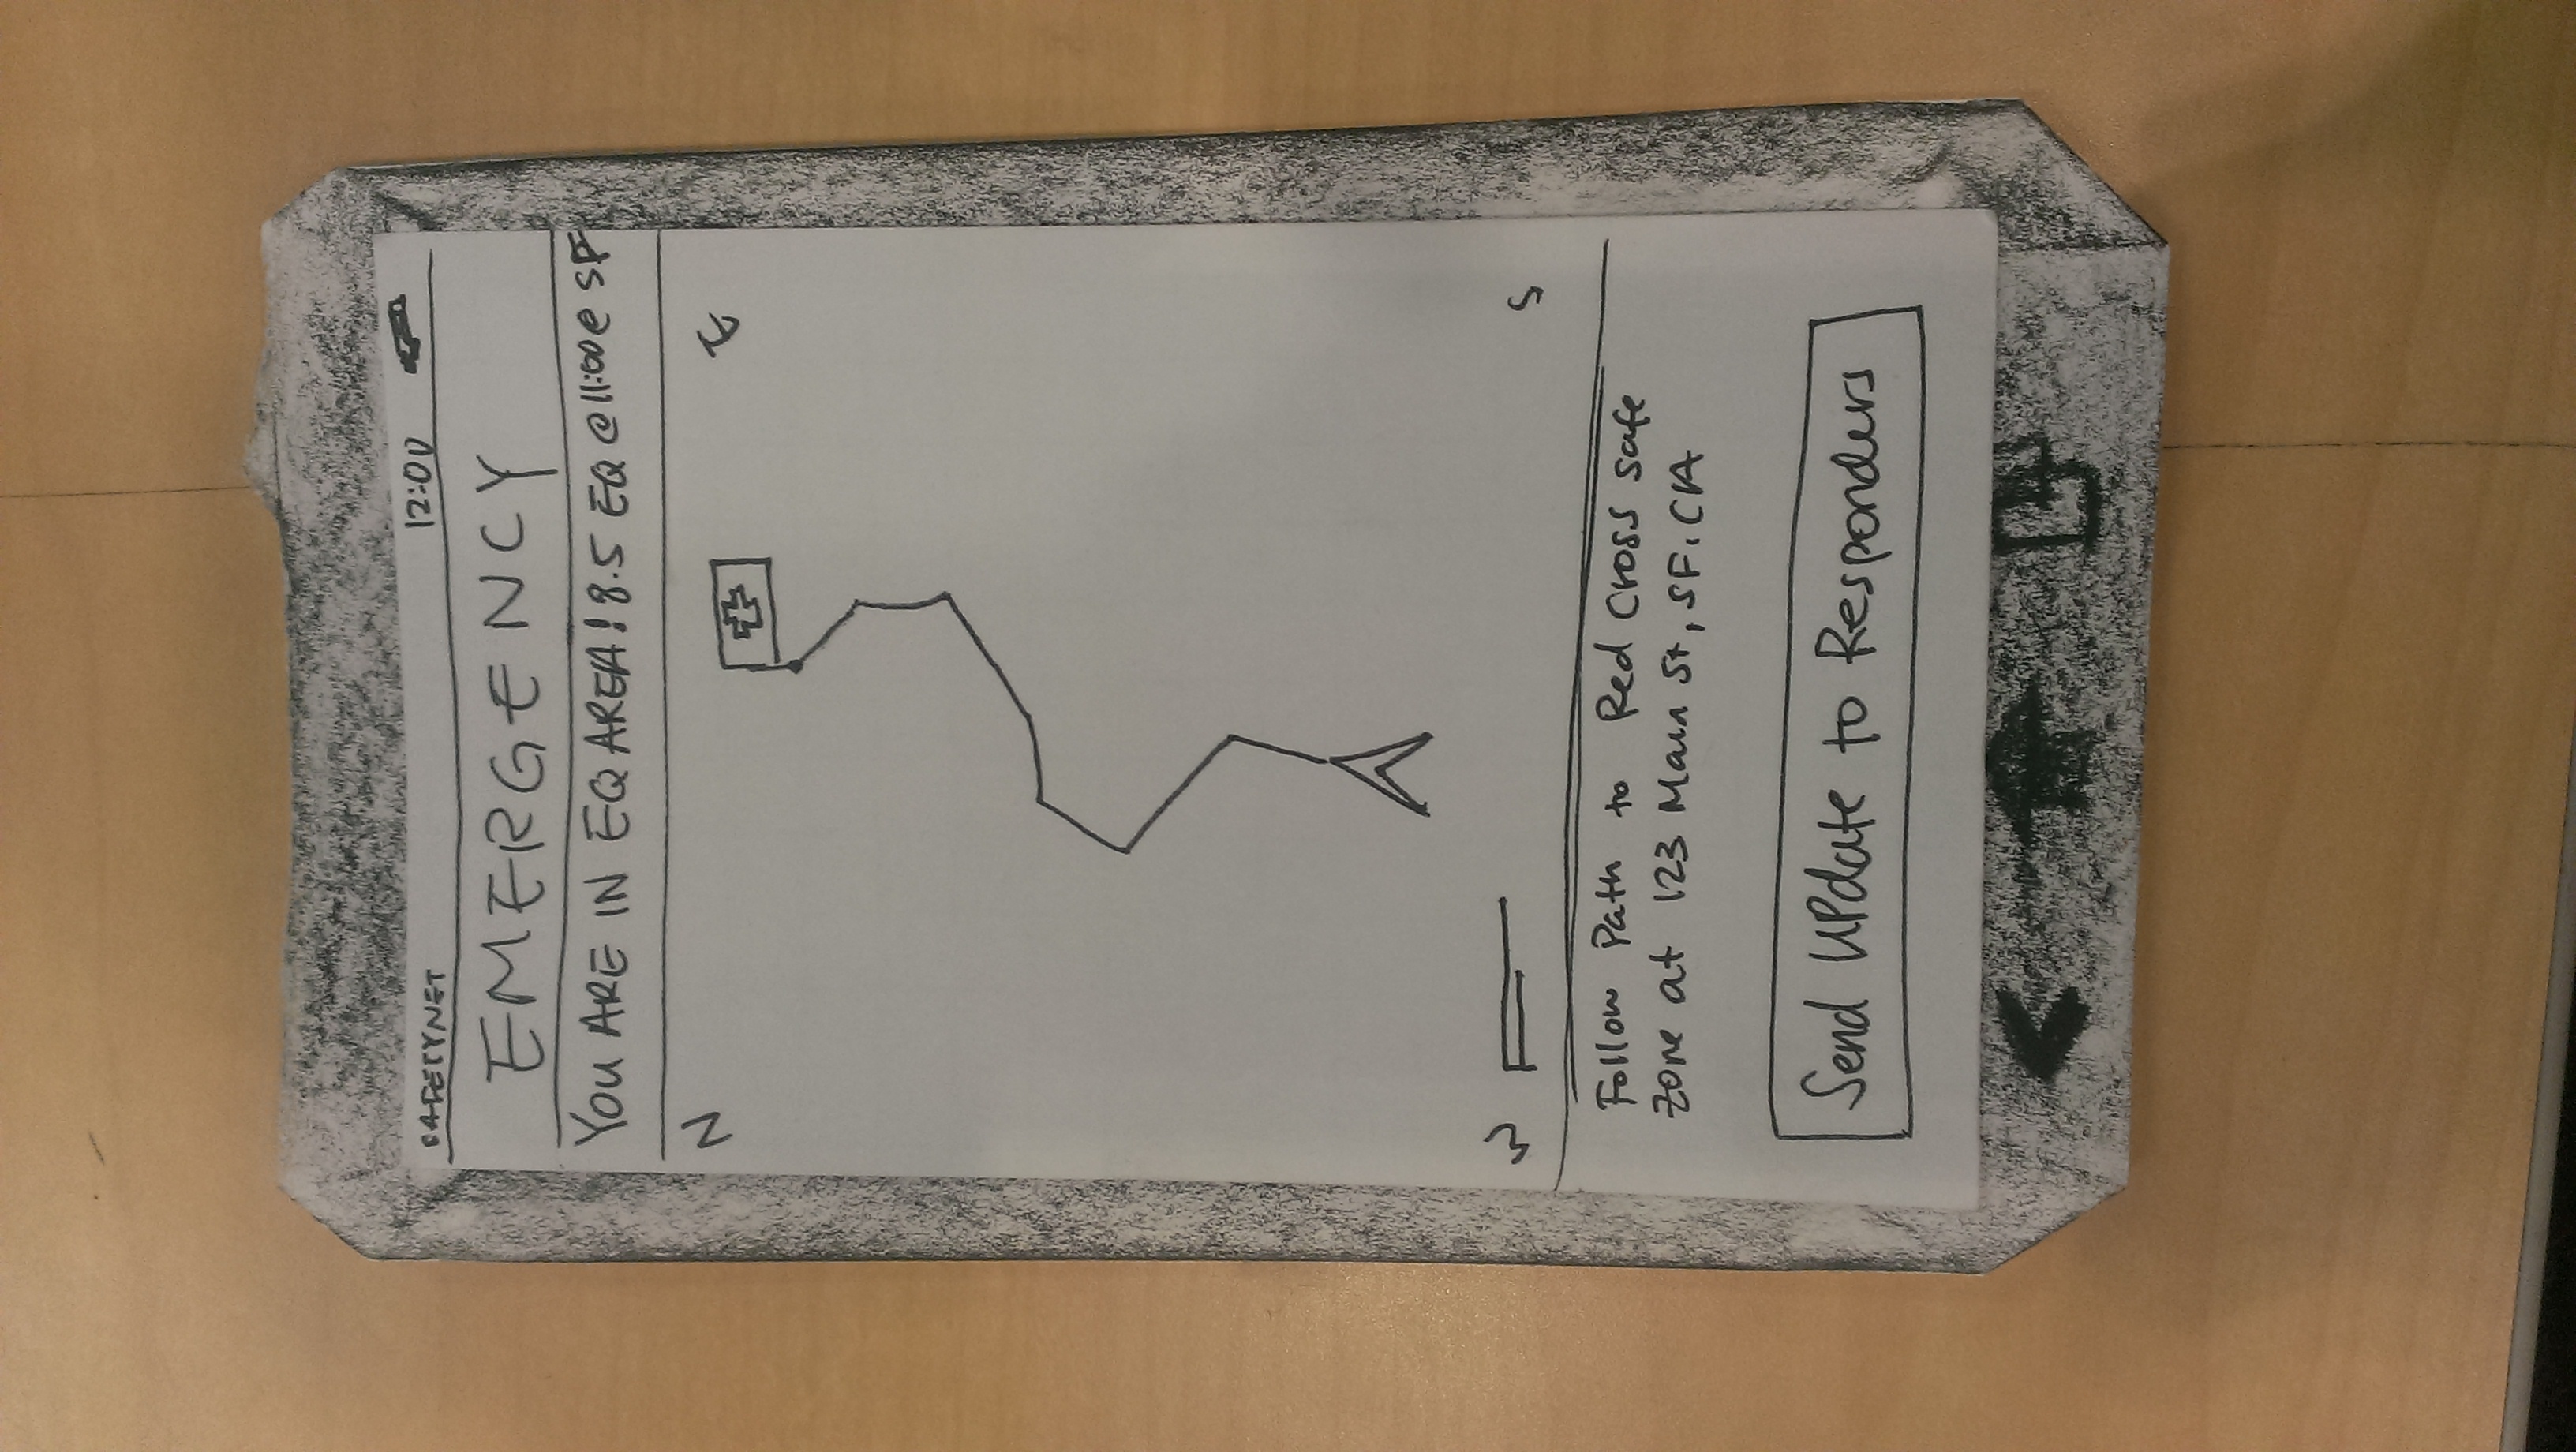 SAFETYNET 12:00
EMERGENCY
YOU ARE IN EQ AREA! 8.5 EQ @ 11:00 @ SF
N E
W S
Follow Path to Red Cross safe
zone at 123 Main St, SF, CA
Send UPdate to Responders